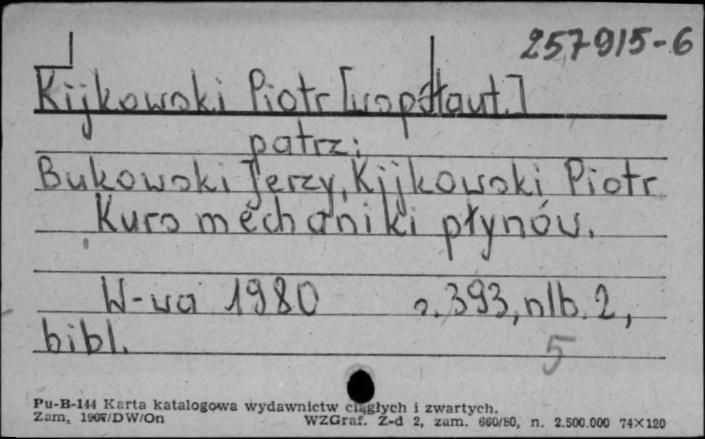 257915-6
Kijkowski Piotr [współaut.]
patrz:
Bukowski Jerzy, Kijkowski Piotr
Kurs mechaniki płynów.
W-wa 1980 s. 393, nlb. 2,
bibl.
5
Pu-B-144 Karta katalogowa wydawnictw ciągłych i zwartych.
Zam. 1907/DW/On WZGraf. Z-d 2, zam. 660/80, n. 2.500.000 74×120